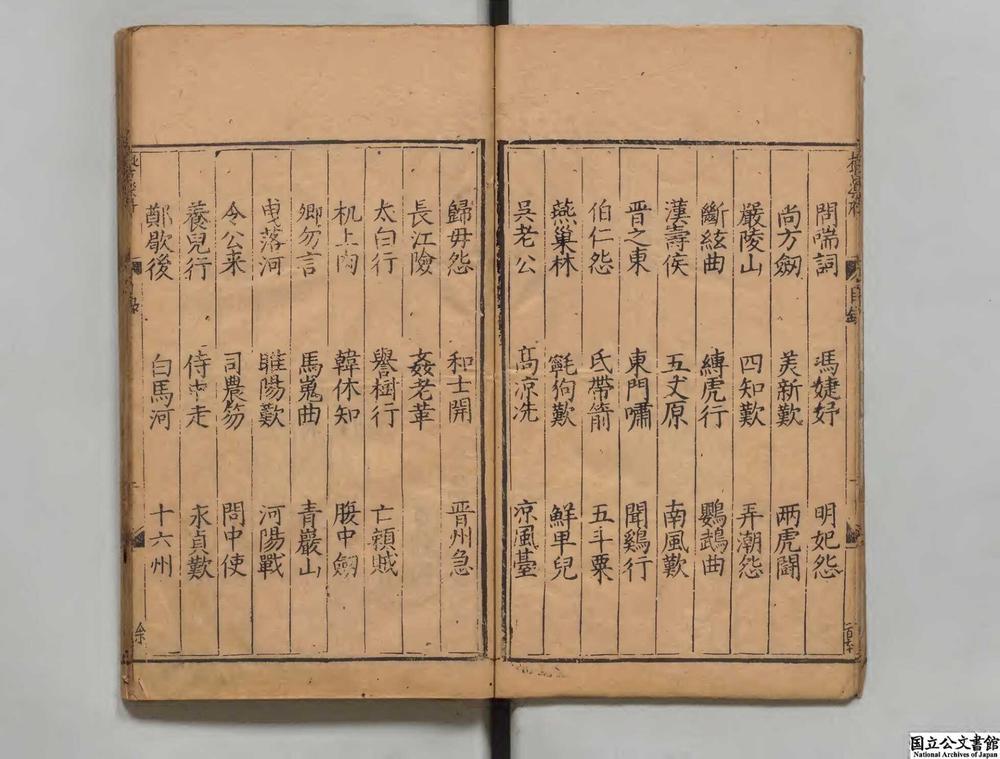 問喘詞 馮婕妤 明妃怨
尚方劒 美新歎 兩虎鬪
嚴陵山 四知歎 弄潮怨
斷絃曲 縛虎行 鸚鵡曲
漢壽侯 五丈原 南風歎
晋之東 東門嘯 聞鷄行
伯仁怨 氐帶箭 五斗粟
燕巢林 氈狗歎 鮮卑兒
吳老公 高涼洗 凉風臺
歸毋怨 和士開 晋州急
長江險 姦老革
太白行 譽樹行 亡賴賊
机上肉 韓休知 腹中劒
卿勿言 馬嵬曲 青巖山
曳落河 睢陽歎 河陽戰
令公来 司農笏 問中使
養兒行 侍中走 永貞歎
鄭歇後 白馬河 十六州
目錄
国立公文書館
National Archives of Japan